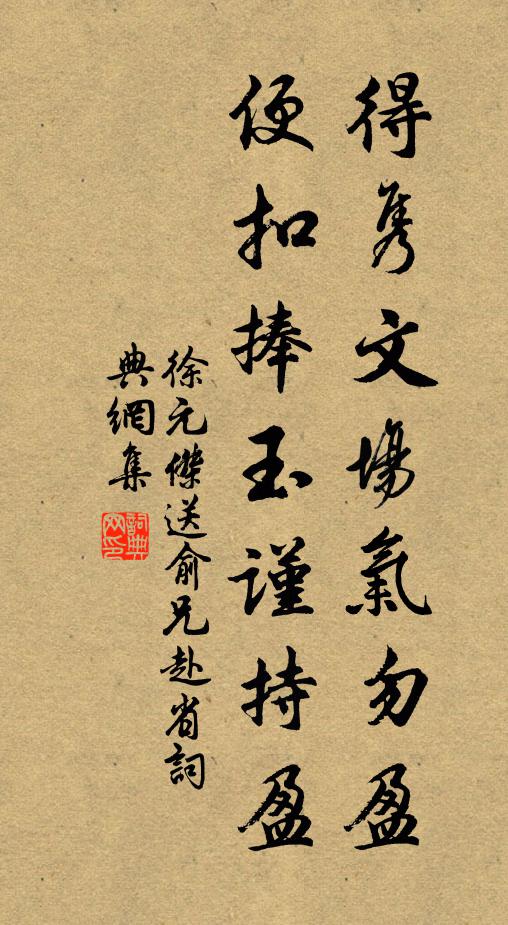 得隽文場氣勿盈
便扣捧玉謹持盈
徐元傑送俞兄赴省詞
典網集
詞典
网印